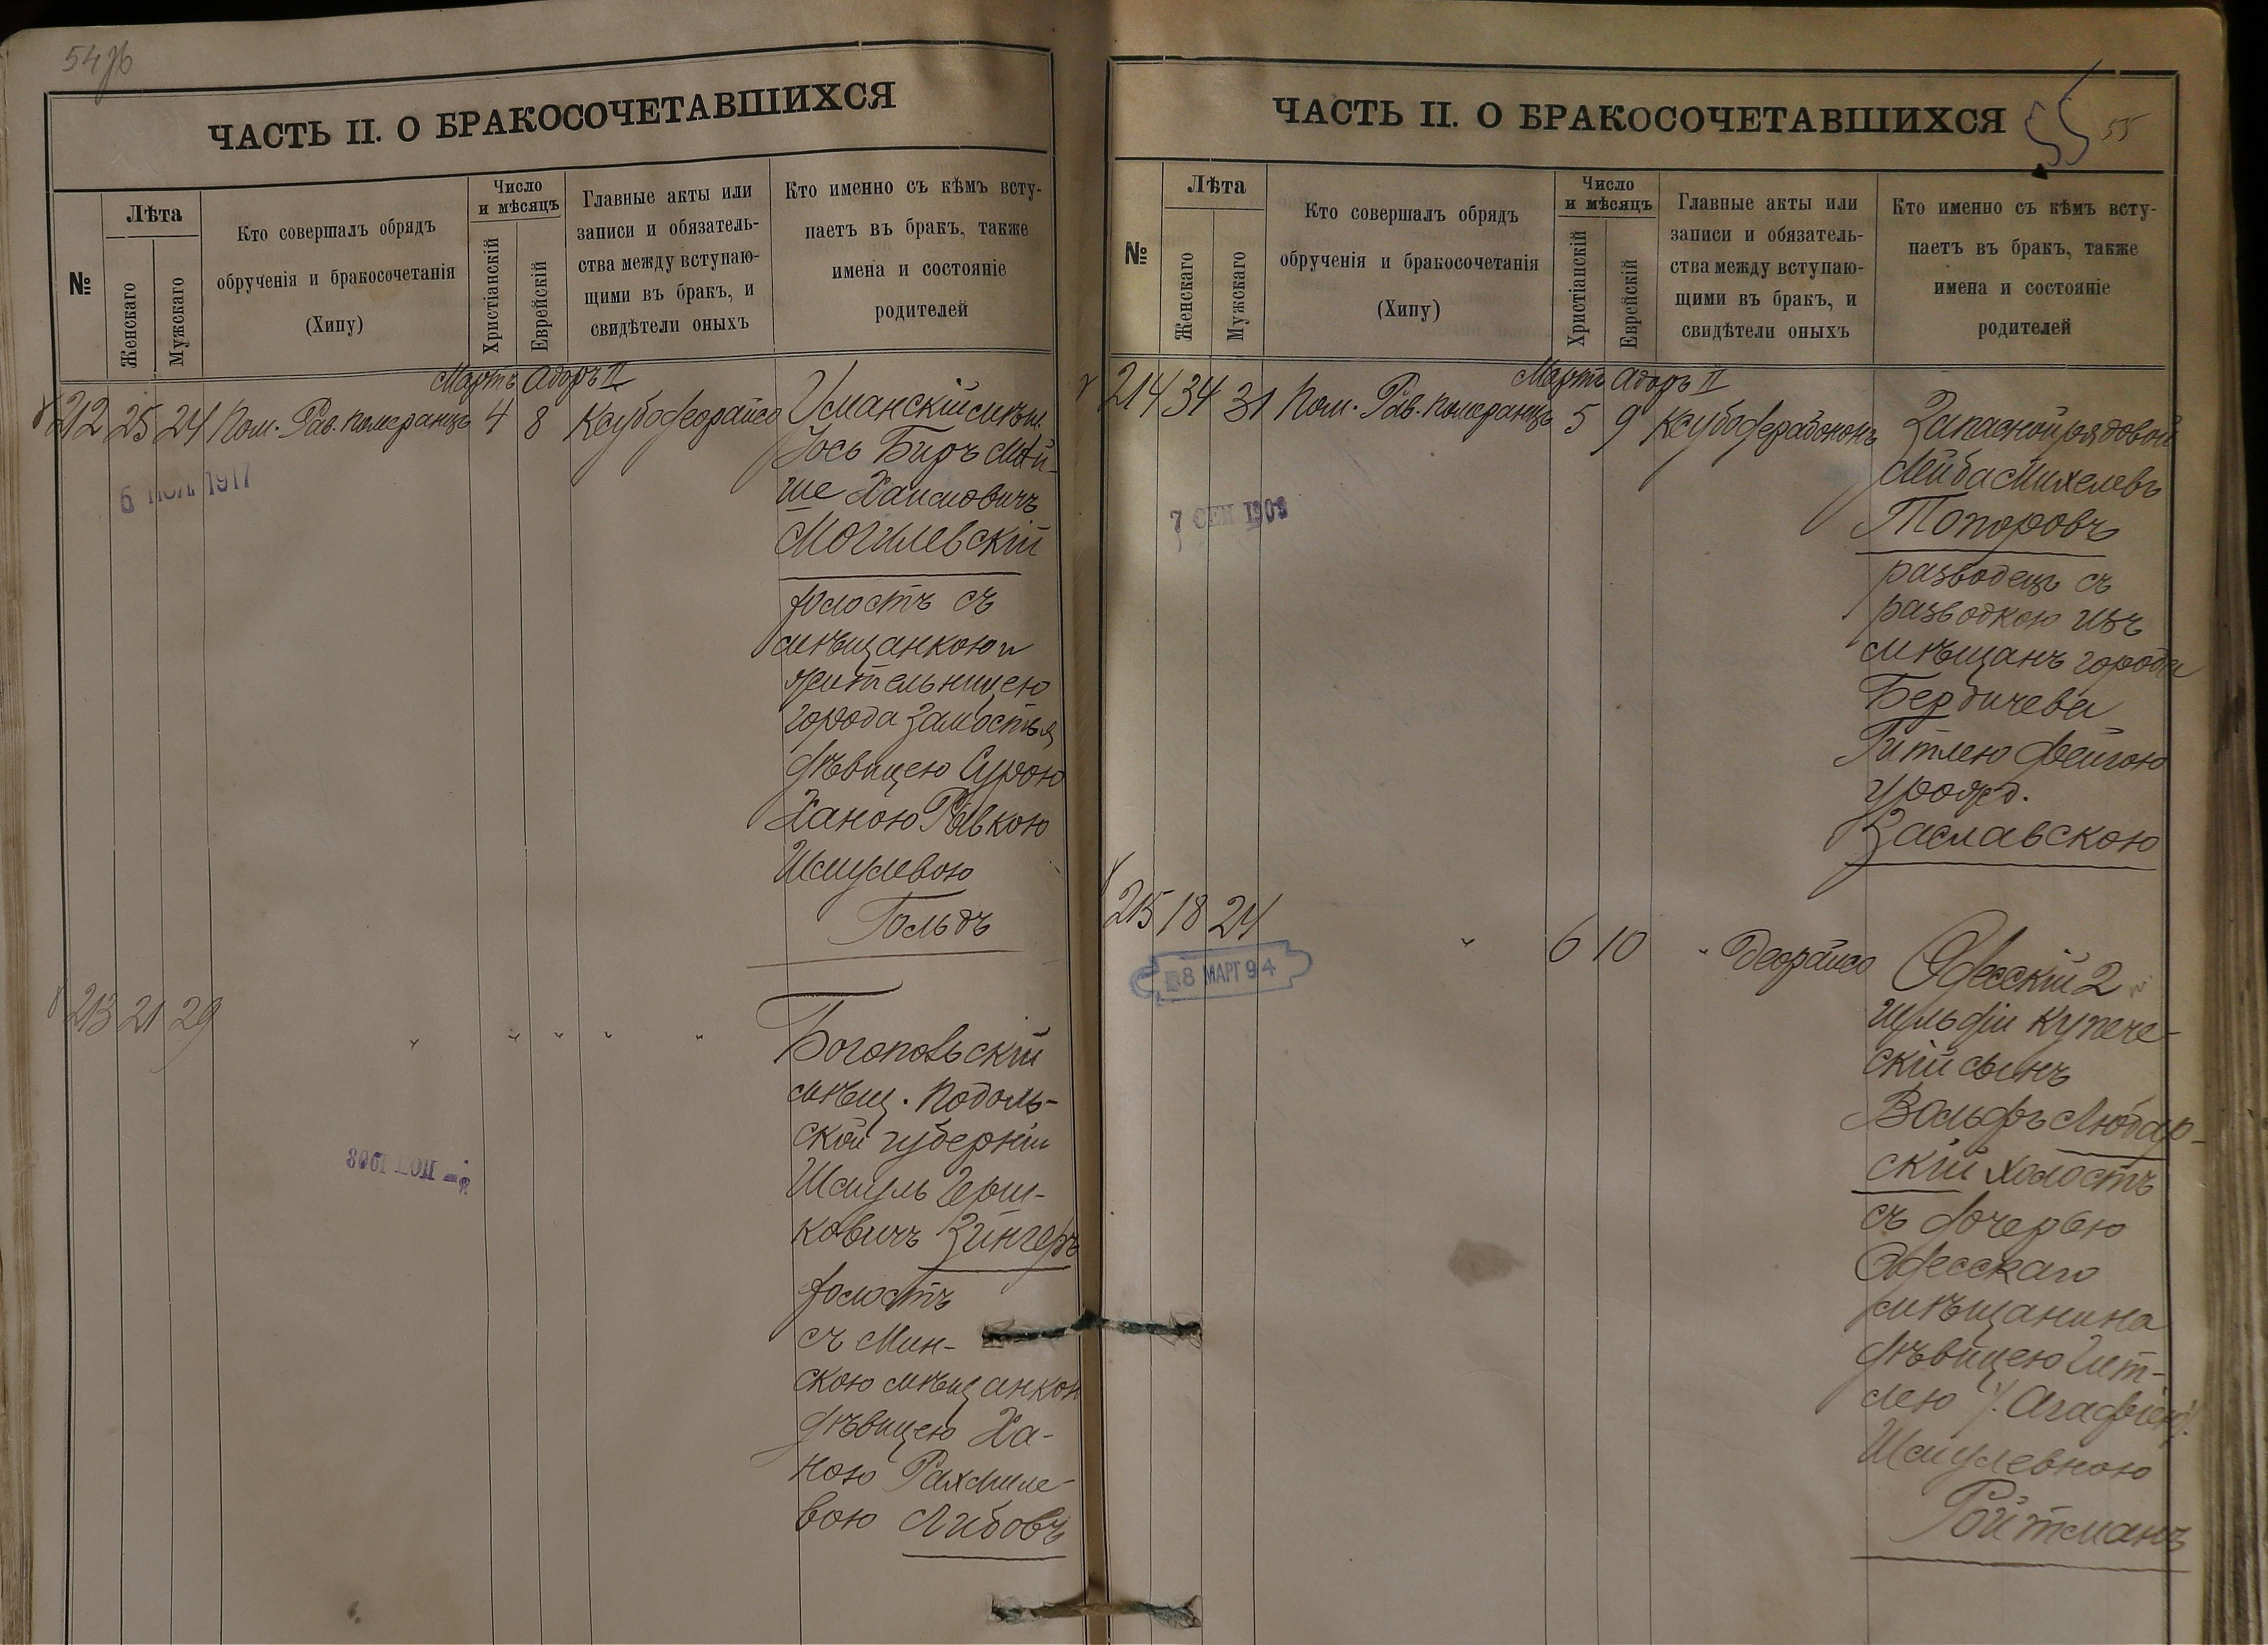 54 об
ЧАСТЬ II. О БРАКОСОЧЕТАВШИХСЯ
№
Лѣта
Женскаго
Мужскаго
Кто совершалъ обрядъ
обрученія и бракосочетанія
(Хипу)
Число
и мѣсяцъ
Христіанскій
Еврейскій
Главные акты или
записи и обязатель-
ства между вступаю-
щими въ бракъ, и
свидѣтели оныхъ
Кто именно съ кѣмъ всту-
паетъ въ бракъ, также
имена и состояніе
родителей
Мартъ Адоръ II
212 25 24 Пом. Рав. Померанцъ 4 8 Ксубо деорайсо
Уманскій мѣщ.
Іось Биръ Мой-
ше Хаимовичъ
Могилевскій
холостъ съ
мѣщанкою и
жительницею
города Замостья
дѣвицею Сурою
Ханою Рывкою
Шмулевою
Гольдъ
1917
213 21 29 " " " " "
Богопольскій
мѣщ. Подоль-
ской губерніи
Шмуль Герш-
ковичъ Зингеръ
холостъ
съ Мин-
скою мѣщанкою
дѣвицею Ха-
ною Рахмиле-
вою Либовъ
1908
ЧАСТЬ II. О БРАКОСОЧЕТАВШИХСЯ
55 55
№
Лѣта
Женскаго
Мужскаго
Кто совершалъ обрядъ
обрученія и бракосочетанія
(Хипу)
Число
и мѣсяцъ
Христіанскій
Еврейскій
Главные акты или
записи и обязатель-
ства между вступаю-
щими въ бракъ, и
свидѣтели оныхъ
Кто именно съ кѣмъ всту-
паетъ въ бракъ, также
имена и состояніе
родителей
Мартъ Адоръ II
214 34 31 Пом. Рав. Померанцъ 5 9 Ксубо дерабононъ
Запасной рядовой
Лейба Михелевъ
Топоровъ
разводецъ съ
разводкою изъ
мѣщанъ города
Бердичева
Гитлею Фейгою
урожд.
Заславскою
7 СЕН 1909
215 18 24 " 6 10 " Деорайсо
Одесскій 2
гильдіи купече-
скій сынъ
Вольфъ Любар-
скій холостъ
съ дочерью
Одесскаго
мѣщанина
дѣвицею Гит-
лею /Агафіею/
Шмулевною
Ройтманъ
8 МАРТ 94